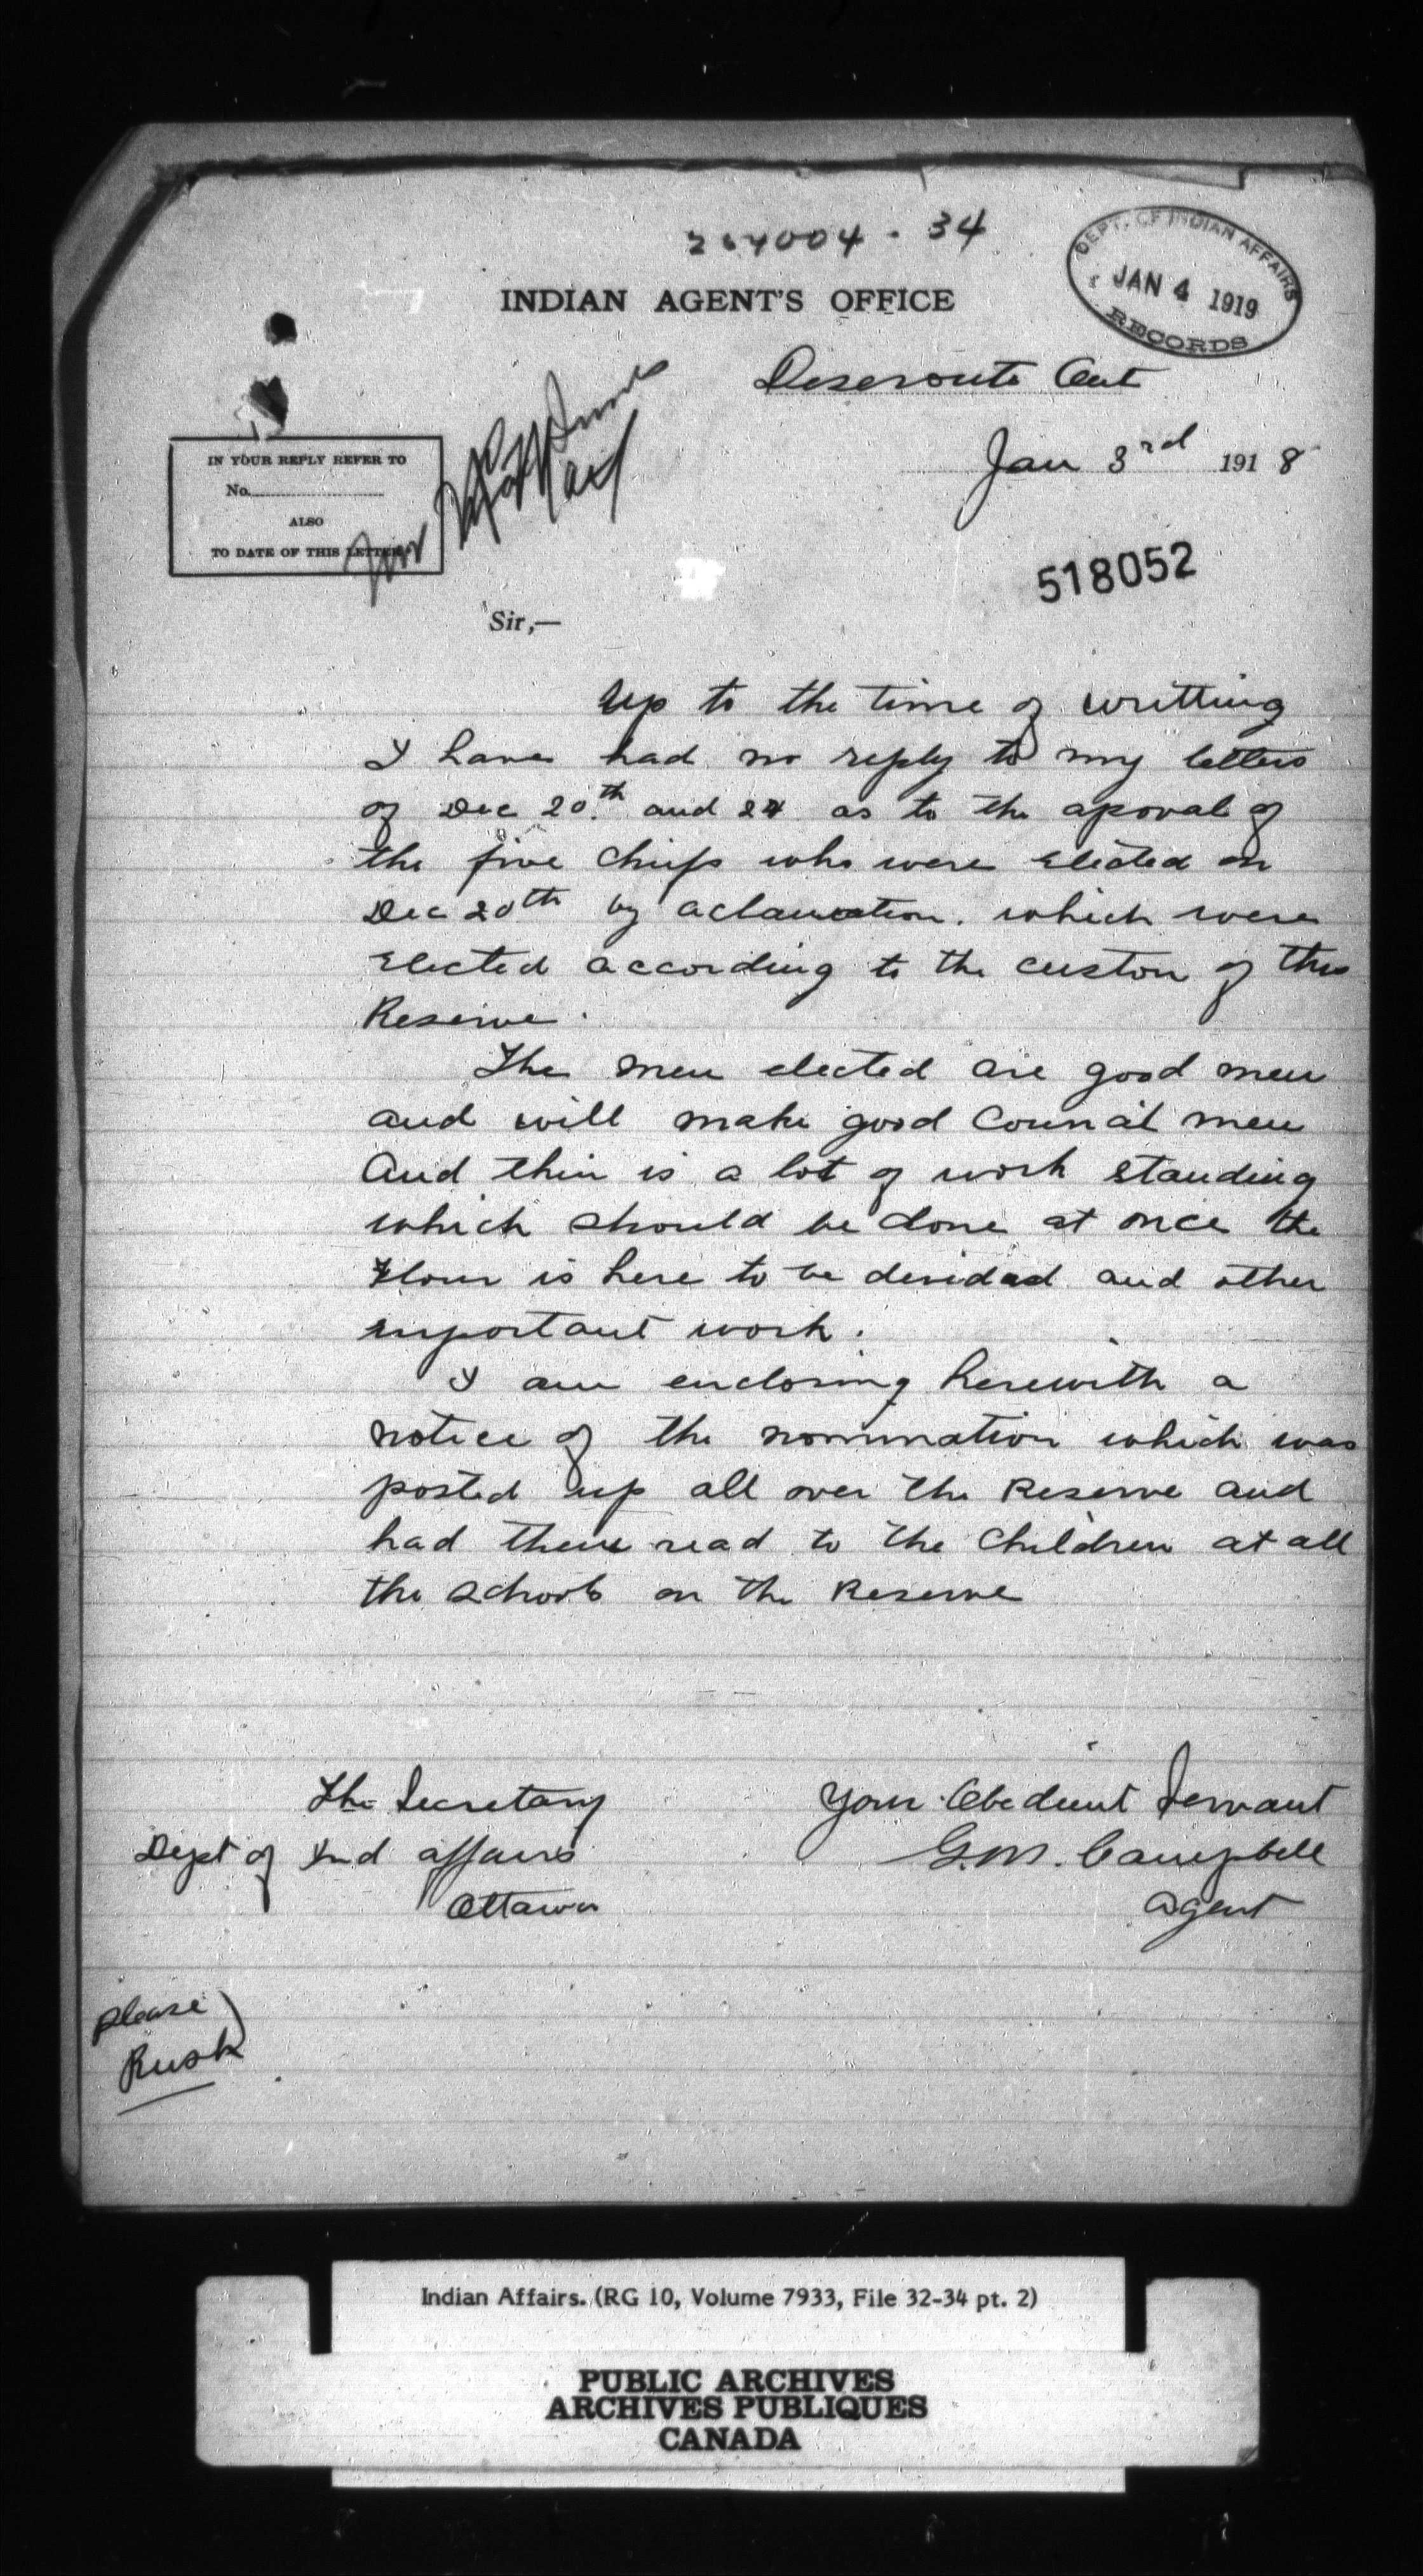 264004 - 34
DEPT. OF INDIAN AFFAIRS
JAN 4 1919
RECORDS
INDIAN AGENT'S OFFICE
Deseronto Ont
Jan 3rd 1918
IN YOUR REPLY REFER TO
No.
ALSO
TO DATE OF THIS LETTER
518052
Sir,—
Up to the time of writting
I have had no reply to my letters
of Dec 20th and 24 as to the aproval of
the five Chiefs who were Elected on
Dec 20th by aclamation. which were
Elected according to the custom of this
Reserve.
The men elected are good men
and will make good Council men
And thier is a lot of work standing
which should be done at once the
Flour is here to be devided and other
important work.
I am enclosing herewith a
notice of the nomination which was
posted up all over the Reserve and
had them read to the Children at all
the schools on the Reserve
The Secretary
Dept of Ind affairs
Ottawa
Your Obedient Servant
G.M. Campbell
Agent
please
Rush
Indian Affairs. (RG 10, Volume 7933, File 32-34 pt. 2)
PUBLIC ARCHIVES
ARCHIVES PUBLIQUES
CANADA